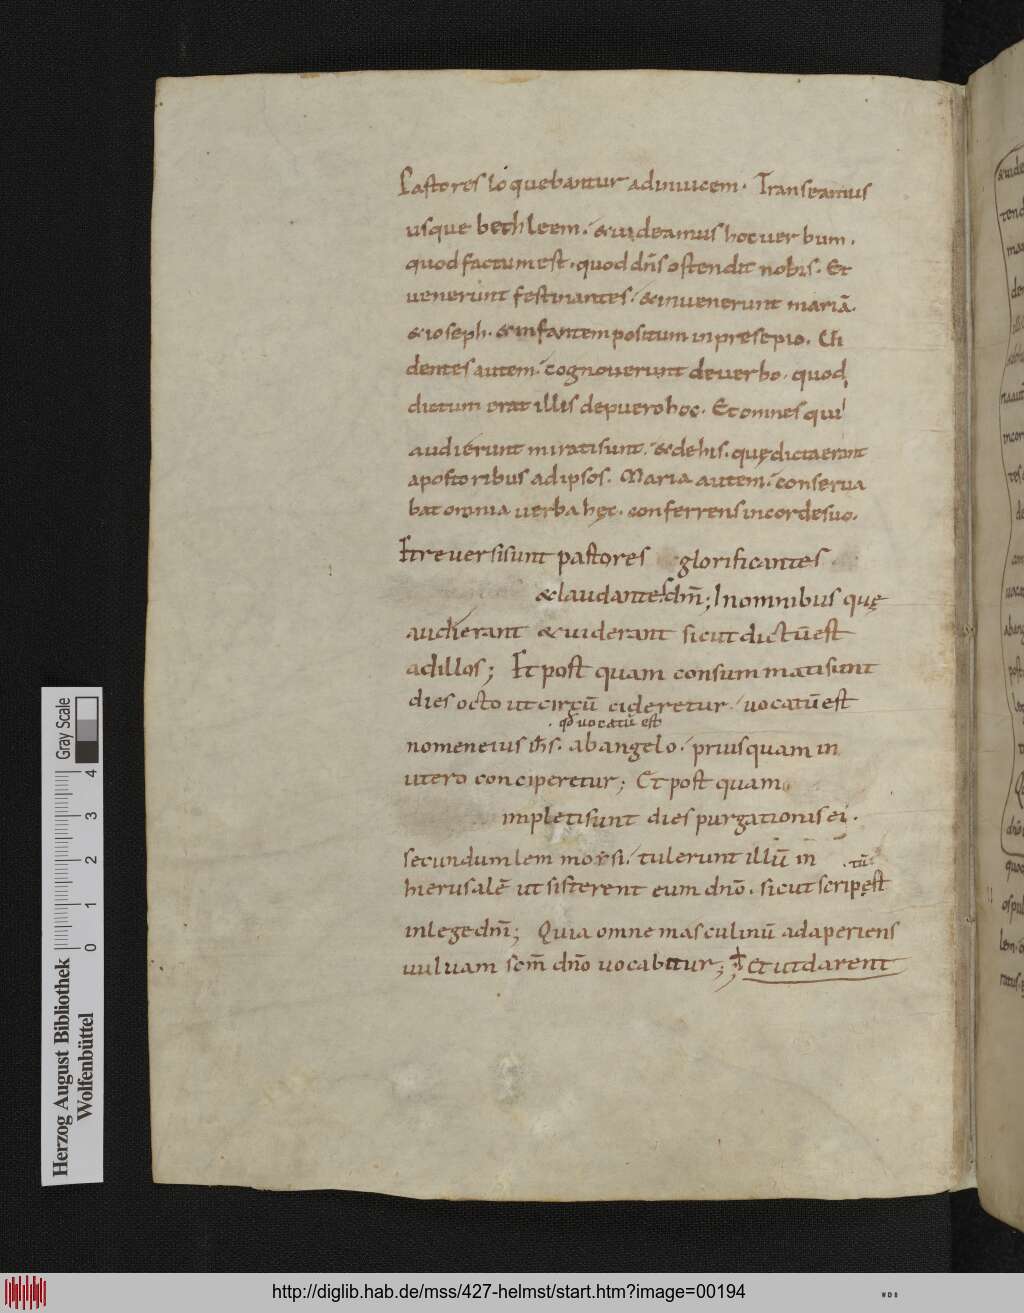 Pastores loquebantur adinuicem. Transeamus
usque bethleem. & uideamus hoc uerbum.
quod factum est. quod dn̄s ostendit nobis. Et
uenerunt festinantes. & inuenerunt mariā.
& ioseph. & infantem positum in presepio. Ui
dentes autem. cognouerunt de uerbo. quod
dictum erat illis de puero hoc. Et omnes qui
audierunt mirati sunt. & de his. quę dicta erant
a pastoribus ad ipsos. Maria autem. conserua
bat omnia uerba hęc. conferrens in corde suo.
Et reuersi sunt pastores glorificantes
& laudantes dm̄; In omnibus quę
audierant & uiderant sicut dictū est
ad illos; Et post quam consummati sunt
dies octo ut circū cideretur. uocatū est
. qđ uocatū est
nomen eius ih̄s. ab angelo. priusquam in
utero conciperetur; Et post quam
impleti sunt dies purgationis ei.
secundum lem morsi. tulerunt illū in
.tū.
hierusalē ut sisterent eum dnō. sicut scrip est
in lege dnī; Quia omne masculinū adaperiens
uuluam scm̄ dnō uocabitur; Et ut darent
Herzog August Bibliothek
Wolfenbüttel
0 1 2 3 4
Gray Scale
http://diglib.hab.de/mss/427-helmst/start.htm?image=00194